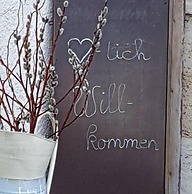 ♡lich
Will-
kommen